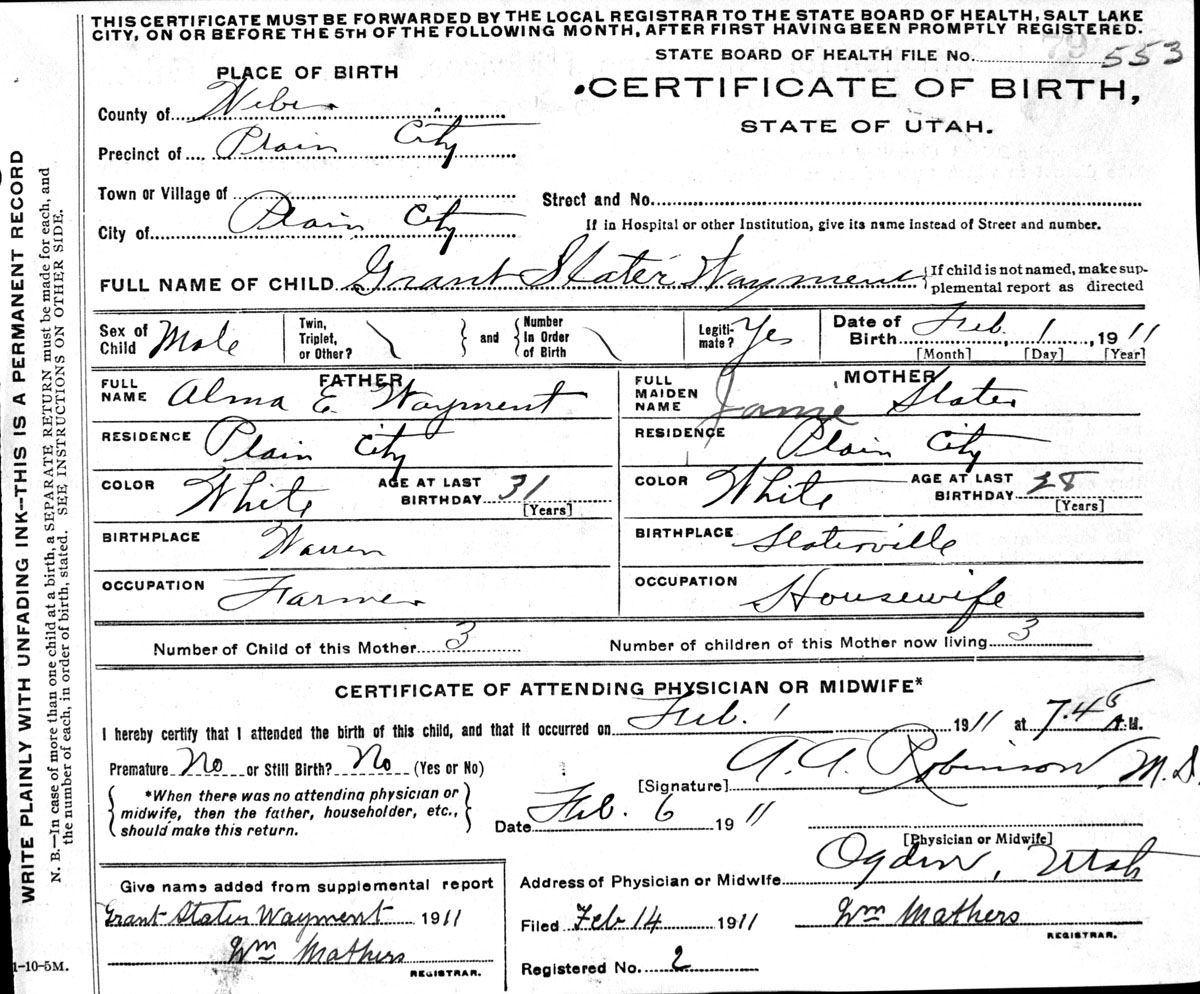 THIS CERTIFICATE MUST BE FORWARDED BY THE LOCAL REGISTRAR TO THE STATE BOARD OF HEALTH, SALT LAKE
CITY, ON OR BEFORE THE 5TH OF THE FOLLOWING MONTH, AFTER FIRST HAVING BEEN PROMPTLY REGISTERED.
79
STATE BOARD OF HEALTH FILE No. 553
PLACE OF BIRTH
CERTIFICATE OF BIRTH,
STATE OF UTAH.
County of Weber
Precinct of Plain City
Town or Village of
City of Plain City
Street and No.
If in Hospital or other Institution, give its name instead of Street and number.
FULL NAME OF CHILD Grant Slater Wayment {If child is not named, make sup-
plemental report as directed
Sex of Child Male
Twin, Triplet, or Other? } and { Number In Order of Birth
Legiti-mate? Yes
Date of Birth Feb. 1, 1911
[Month] [Day] [Year]
FATHER
FULL NAME Alma E Wayment
MOTHER
FULL MAIDEN NAME Janie Slater
RESIDENCE Plain City
RESIDENCE Plain City
COLOR White AGE AT LAST BIRTHDAY 31 [Years]
COLOR White AGE AT LAST BIRTHDAY 28 [Years]
BIRTHPLACE Warren
BIRTHPLACE Slaterville
OCCUPATION Farmer
OCCUPATION Housewife
Number of Child of this Mother 3
Number of children of this Mother now living 3
CERTIFICATE OF ATTENDING PHYSICIAN OR MIDWIFE*
I hereby certify that I attended the birth of this child, and that it occurred on Feb. 1 1911 at 7.45 A.M.
Premature No or Still Birth? No (Yes or No)
[Signature] A. A. Robinson M.D.
{ *When there was no attending physician or
midwife, then the father, householder, etc.,
should make this return. }
Date Feb. 6 1911
[Physician or Midwife]
Address of Physician or Midwife Ogden, Utah
Give name added from supplemental report
Grant Slater Wayment 1911
Wm Mathers
REGISTRAR.
Filed Feb 14 1911 Wm Mathers
REGISTRAR.
Registered No. 2
1-10-5M.
WRITE PLAINLY WITH UNFADING INK—THIS IS A PERMANENT RECORD
N. B.—In case of more than one child at a birth, a SEPARATE RETURN must be made for each, and
the number of each, in order of birth, stated. SEE INSTRUCTIONS ON OTHER SIDE.